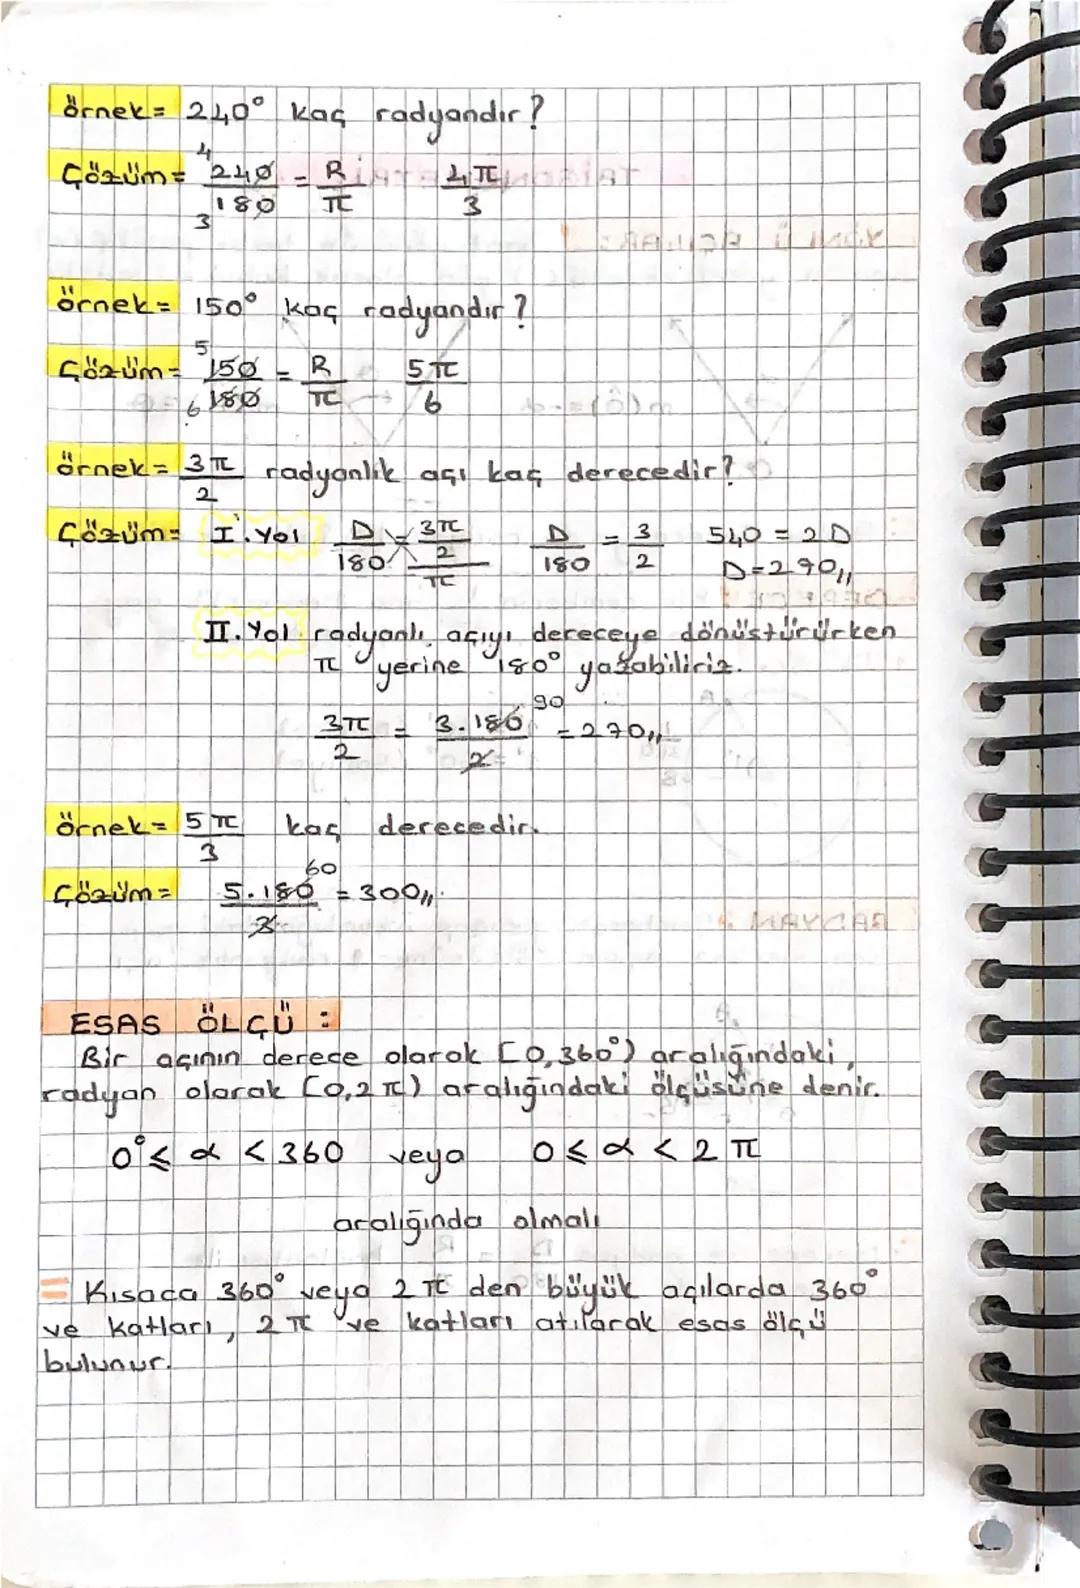 örnek= 240° kaç radyandır?
Çözüm= 4 240/180 3 = R/π 4π/3
örnek= 150° kaç radyandır?
Çözüm= 5 150/6 180 = R/π 5π/6
örnek= 3π/2 radyanlık açı kaç derecedir?
Çözüm= I.Yol D/180 = 3π/2/π D/180 = 3/2 540 = 2D
D=270,,
II.Yol radyanlı açıyı dereceye dönüştürürken
π yerine 180° yazabiliriz.
3π/2 = 3.180/2 90 = 270,,
örnek= 5π/3 kaç derecedir.
Çözüm= 5.180/3 60 = 300,,
ESAS ÖLÇÜ :
Bir açının derece olarak [0,360°) aralığındaki,
radyan olarak [0,2π) aralığındaki ölçüsüne denir.
0° ≤ α < 360 veya 0 ≤ α < 2π
aralığında olmalı
= Kısaca 360° veya 2π den büyük açılarda 360°
ve katları, 2π ve katları atılarak esas ölçü
bulunur.